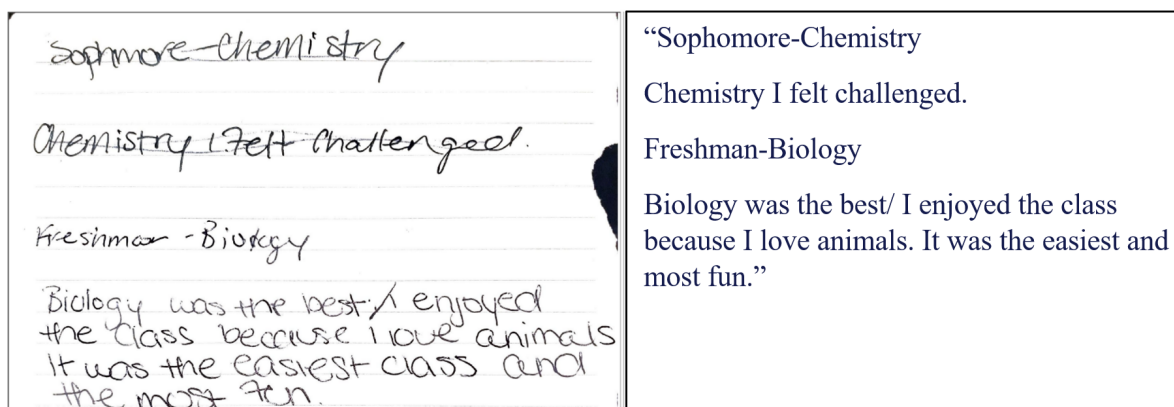 Sophmore-Chemistry
Chemistry I felt challenged.
Freshman - Biology
Biology was the best / I enjoyed
the class because I love animals
It was the easiest class and
the most fun.
“Sophomore-Chemistry
Chemistry I felt challenged.
Freshman-Biology
Biology was the best/ I enjoyed the class
because I love animals. It was the easiest and
most fun.”